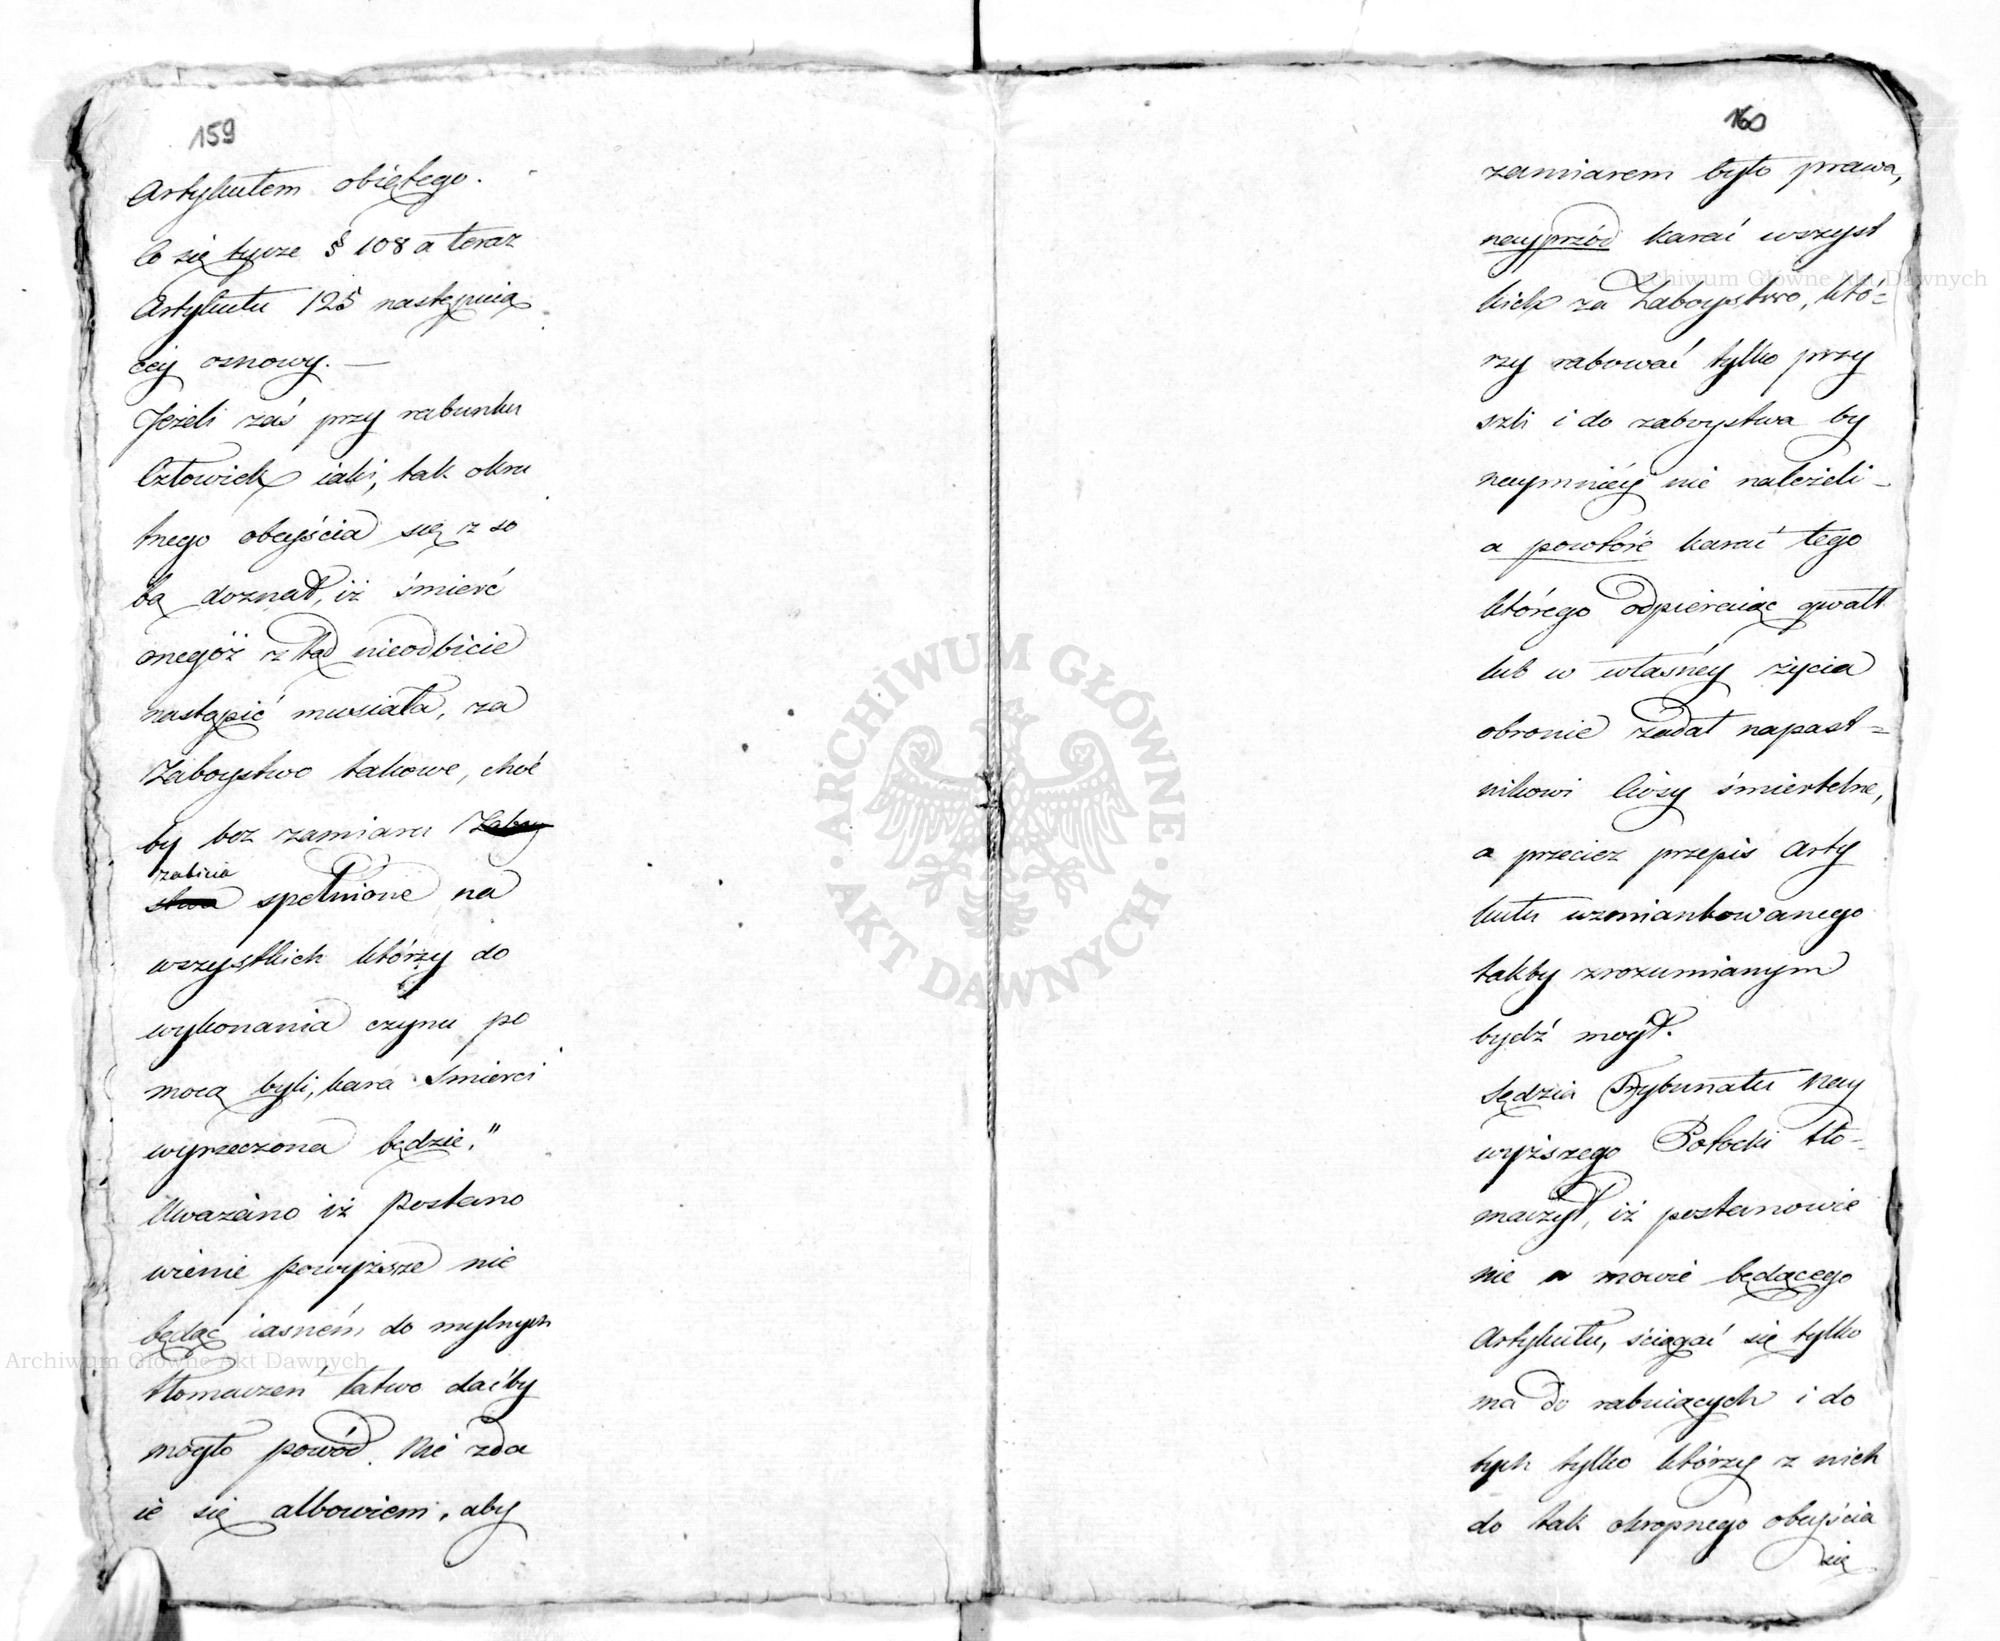 159
Artykułem obiętego.
Co się tycze § 108 a teraz
Artykułu 125 następuią
cey osnowy. —
Jeżeli zaś przy rabunku
Człowiek iaki, tak okru
tnego obeyścia się z so
bą doznał, iż śmierć
onegóż ztąd nieodbicie
nastąpić musiała, za
Zaboystwo takowe, choć
by bez zamiaru Zaboy
zabicia
stwa spełnione na
wszystkich którzy do
wykonania czynu po
mocą byli, kara śmierci
wyrzeczona będzie."
Uważano iż Postano
wienie powyższe nie
będąc iasném, do mylnych
tłomaczeń łatwo daćby
mogło powód. Nie zda
ie się albowiem, aby
160
zamiarem było prawa,
nayprzód karać wszyst
kich za Zaboystwo, któ=
rzy rabować tylko przy
szli i do zaboystwa by
naymniéy nie należeli –
a powtóre karać tego
którego odpieraiąc gwałt
lub w własnéy życia
obronie zadał napast=
nikowi Ciosy śmiertelne,
a przeciez przepis Arty
kułu wzmiankowanego
takby zrozumianym
bydź mógł.
Sędzia Trybunału Nay
wyższego Potocki tło-
maczył, iż postanowie
nie w mowie będącego
Artykułu, ściągać się tylko
ma do rabuiących i do
tych tylko którzy z nich
do tak okropnego obeyścia
się
Archiwum Główne Akt Dawnych
Archiwum Główne Akt Dawnych
ARCHIWUM GŁÓWNE
AKT DAWNYCH